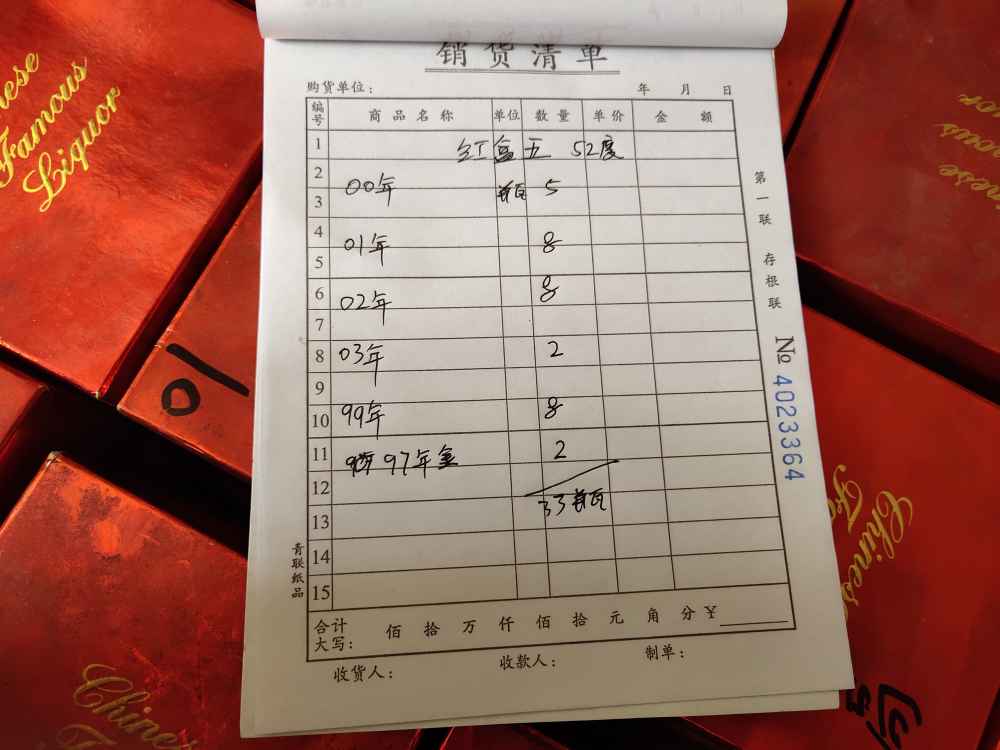 销货清单
购货单位： 年 月 日
编号 商品名称 单位 数量 单价 金额
1 红盒五 52度
2
00年 瓶 5
3
4
01年 8
5
6
02年 8
7
8 03年 2
9
10 99年 8
11 97年 2
12
33瓶
13
14
15
合计大写： 佰 拾 万 仟 佰 拾 元 角 分 ¥
收货人： 收款人： 制单：
第一联 存根联
№ 4023364
青联纸品
nese
Famous
Liquor
01
Chines
Chines